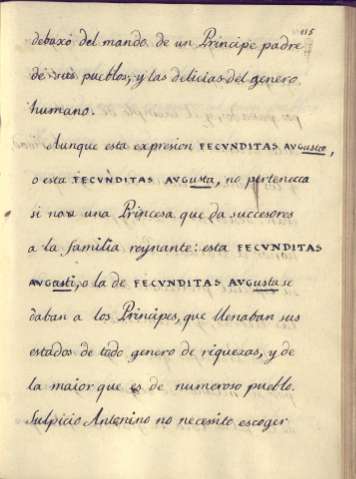 115
debaxo del mando de un Principe padre
de sus pueblos, y las delicias del genero
humano.
Aunque esta expresion FECVNDITAS AVGustae,
o esta FECVNDITAS AVGusta, no pertenecca
si no a una Princesa que da succesores
a la familia reynante: esta FECVNDITAS
AVGusti, o la de FECVNDITAS AVGusta se
daban a los Principes, que llenaban sus
estados de todo genero de riquezas, y de
la maior que es de numeroso pueblo.
Sulpicio Antonino no necesito escoger